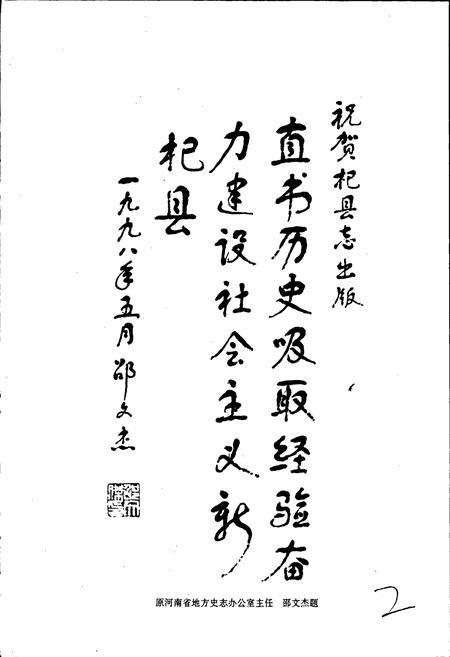 祝贺杞县志出版
直书历史吸取经验奋
力建设社会主义新
杞县
一九九八年五月邵文杰
原河南省地方史志办公室主任 邵文杰题
2